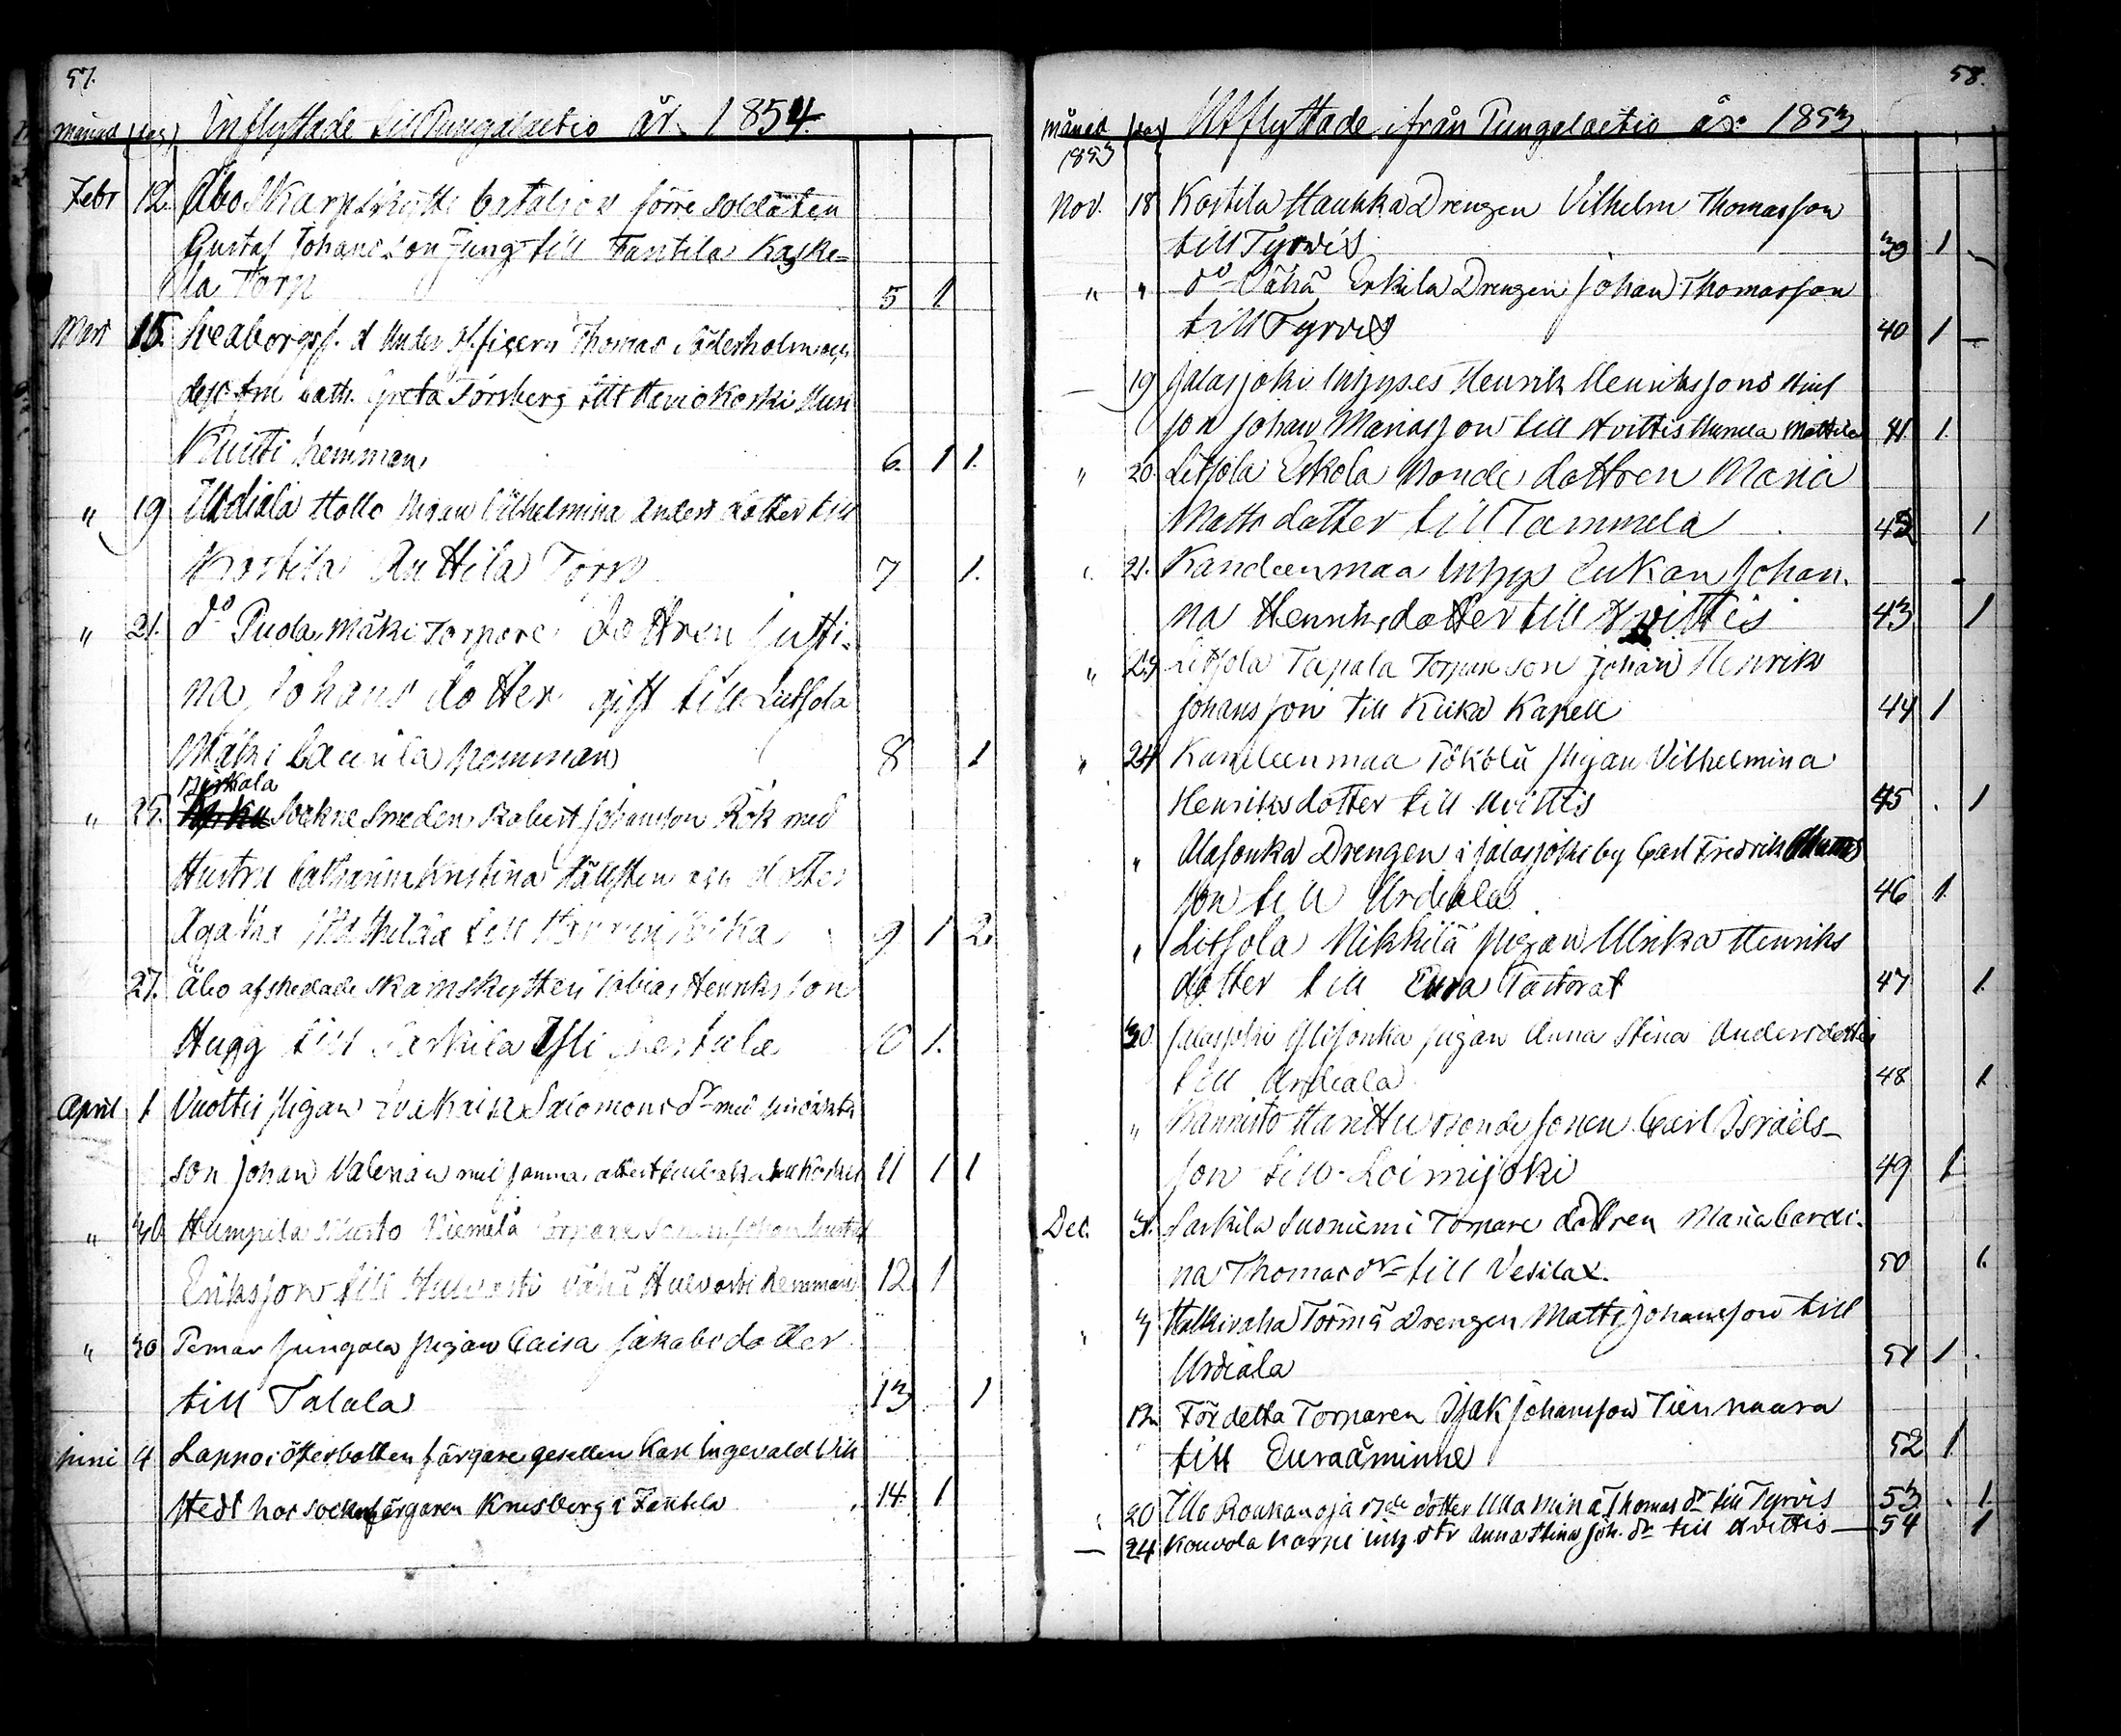 57.
månad dag Inflyttade till Pungalaitio år 1854
Febr 12. Åbo Skarpskytte bataljon förre soldaten
Gustaf Johansson Ljung till Fantila Kaske=
la Torp 5 1.
Mars 15. Sveaborgs f. d Under Officern Thomas Söderholm och
dess fru Cath. Greta Forsberg till Haviokoski Uusi
Knuuti hemman, 6. 1 1.
" 19 Urdiala Hollo Pigan Vilhelmina Anders dotter till
Kostila Anttila Torp 7 1.
" 21. do Puda, mäki Torpare dottren Justi=
na, Johans dotter gift till Liitsola
Mäki Laurila hemman 8 1
Birkala
" 25. Sockne Smeden Robert Johansson Rök med
Hustru Catharina Kristina Hällsten och dotter
Agatha Mathilda till 9. 1 2.
27. Åbo afskedade Skarpskytten Tobias Henriksson
Hugg till Sarkila Yli 10 1.
April 1 Pigan Salomons dr med
son Johan Valerian 11 1 1
" 30 Humpila Murto Niemelä Torpare Sonen Johan Gustaf
Eriksson till Huivasti Vähä Huivasti hemman 12 1
" 30 Pemar Jungola Pigan Caisa Jakabsdotter
till Talala 13 1
Juni 4 Lappo i Österbotten färgare gesellen Karl Ingevald Vik
stedt hos sockenfärgaren Knusberg i Fantila 14 1
58.
månad dag Utflyttade ifrån Pungalaitio år 1853
1853
Nov. 18 Kostila Haukka Drengen Vilhelm Thomasson
till Tyrvis 39 1 –
" " do Vähä Erkila Drengen Johan Thomasson
till Tyrvis 40 1 –
— 19 Jalasjoki Inhyses Henrik Henrikssons
son Johan Mariasson till Hvittis Mattila 41. 1.
" 20. Liitsola Eskola Bonde dottren Maria
Matts dotter till Tammela 42 1
" 21. Kandeenmaa Inhys Enkan Johan=
na Henriksdotter till Hvittis 43 1
" 23 Liitsola Tapala Torpare son Johan Henrik
Johansson till Kiika Kapell 44 1
" 24 Kandeenmaa Tökölä Pigan Vilhelmina
Henriksdotter till Hvittis 45 . 1
" Alasonka Drengen i Jalasjoki by Carl Fredrik
son till Urdiala 46 1.
" Liitsola Nikkilä Pigan Ulrika Henriks
dotter till Eura Pastorat 47 1.
30. Jalasjoki Ylisonka Pigan Anna Stina Andersdotter
till Urdiala 48 1.
" Kannisto Hanttu Bonde Sonen Carl Israels=
son till Loimijoki 49 1.
Dec. 3. Sarkila Suoniemi Torpare dottren Maria Cardi=
na Thomas dr till Vesilax. 50 1.
" 3 Halkivaha Törmä Drengen Matts Johansson till
Urdiala 51 1 .
12. För detta Torparen Isak Johansson Tiennaara
till Euraåminne 52 1
" 20 Illo Roukanoja Bde dotter Ulla Mina Thomas dr till Tyrvis 53 . 1.
— 24 Kouvola Karpi inh. dtr Anna Stina Joh. dr till Hvittis — 54 1